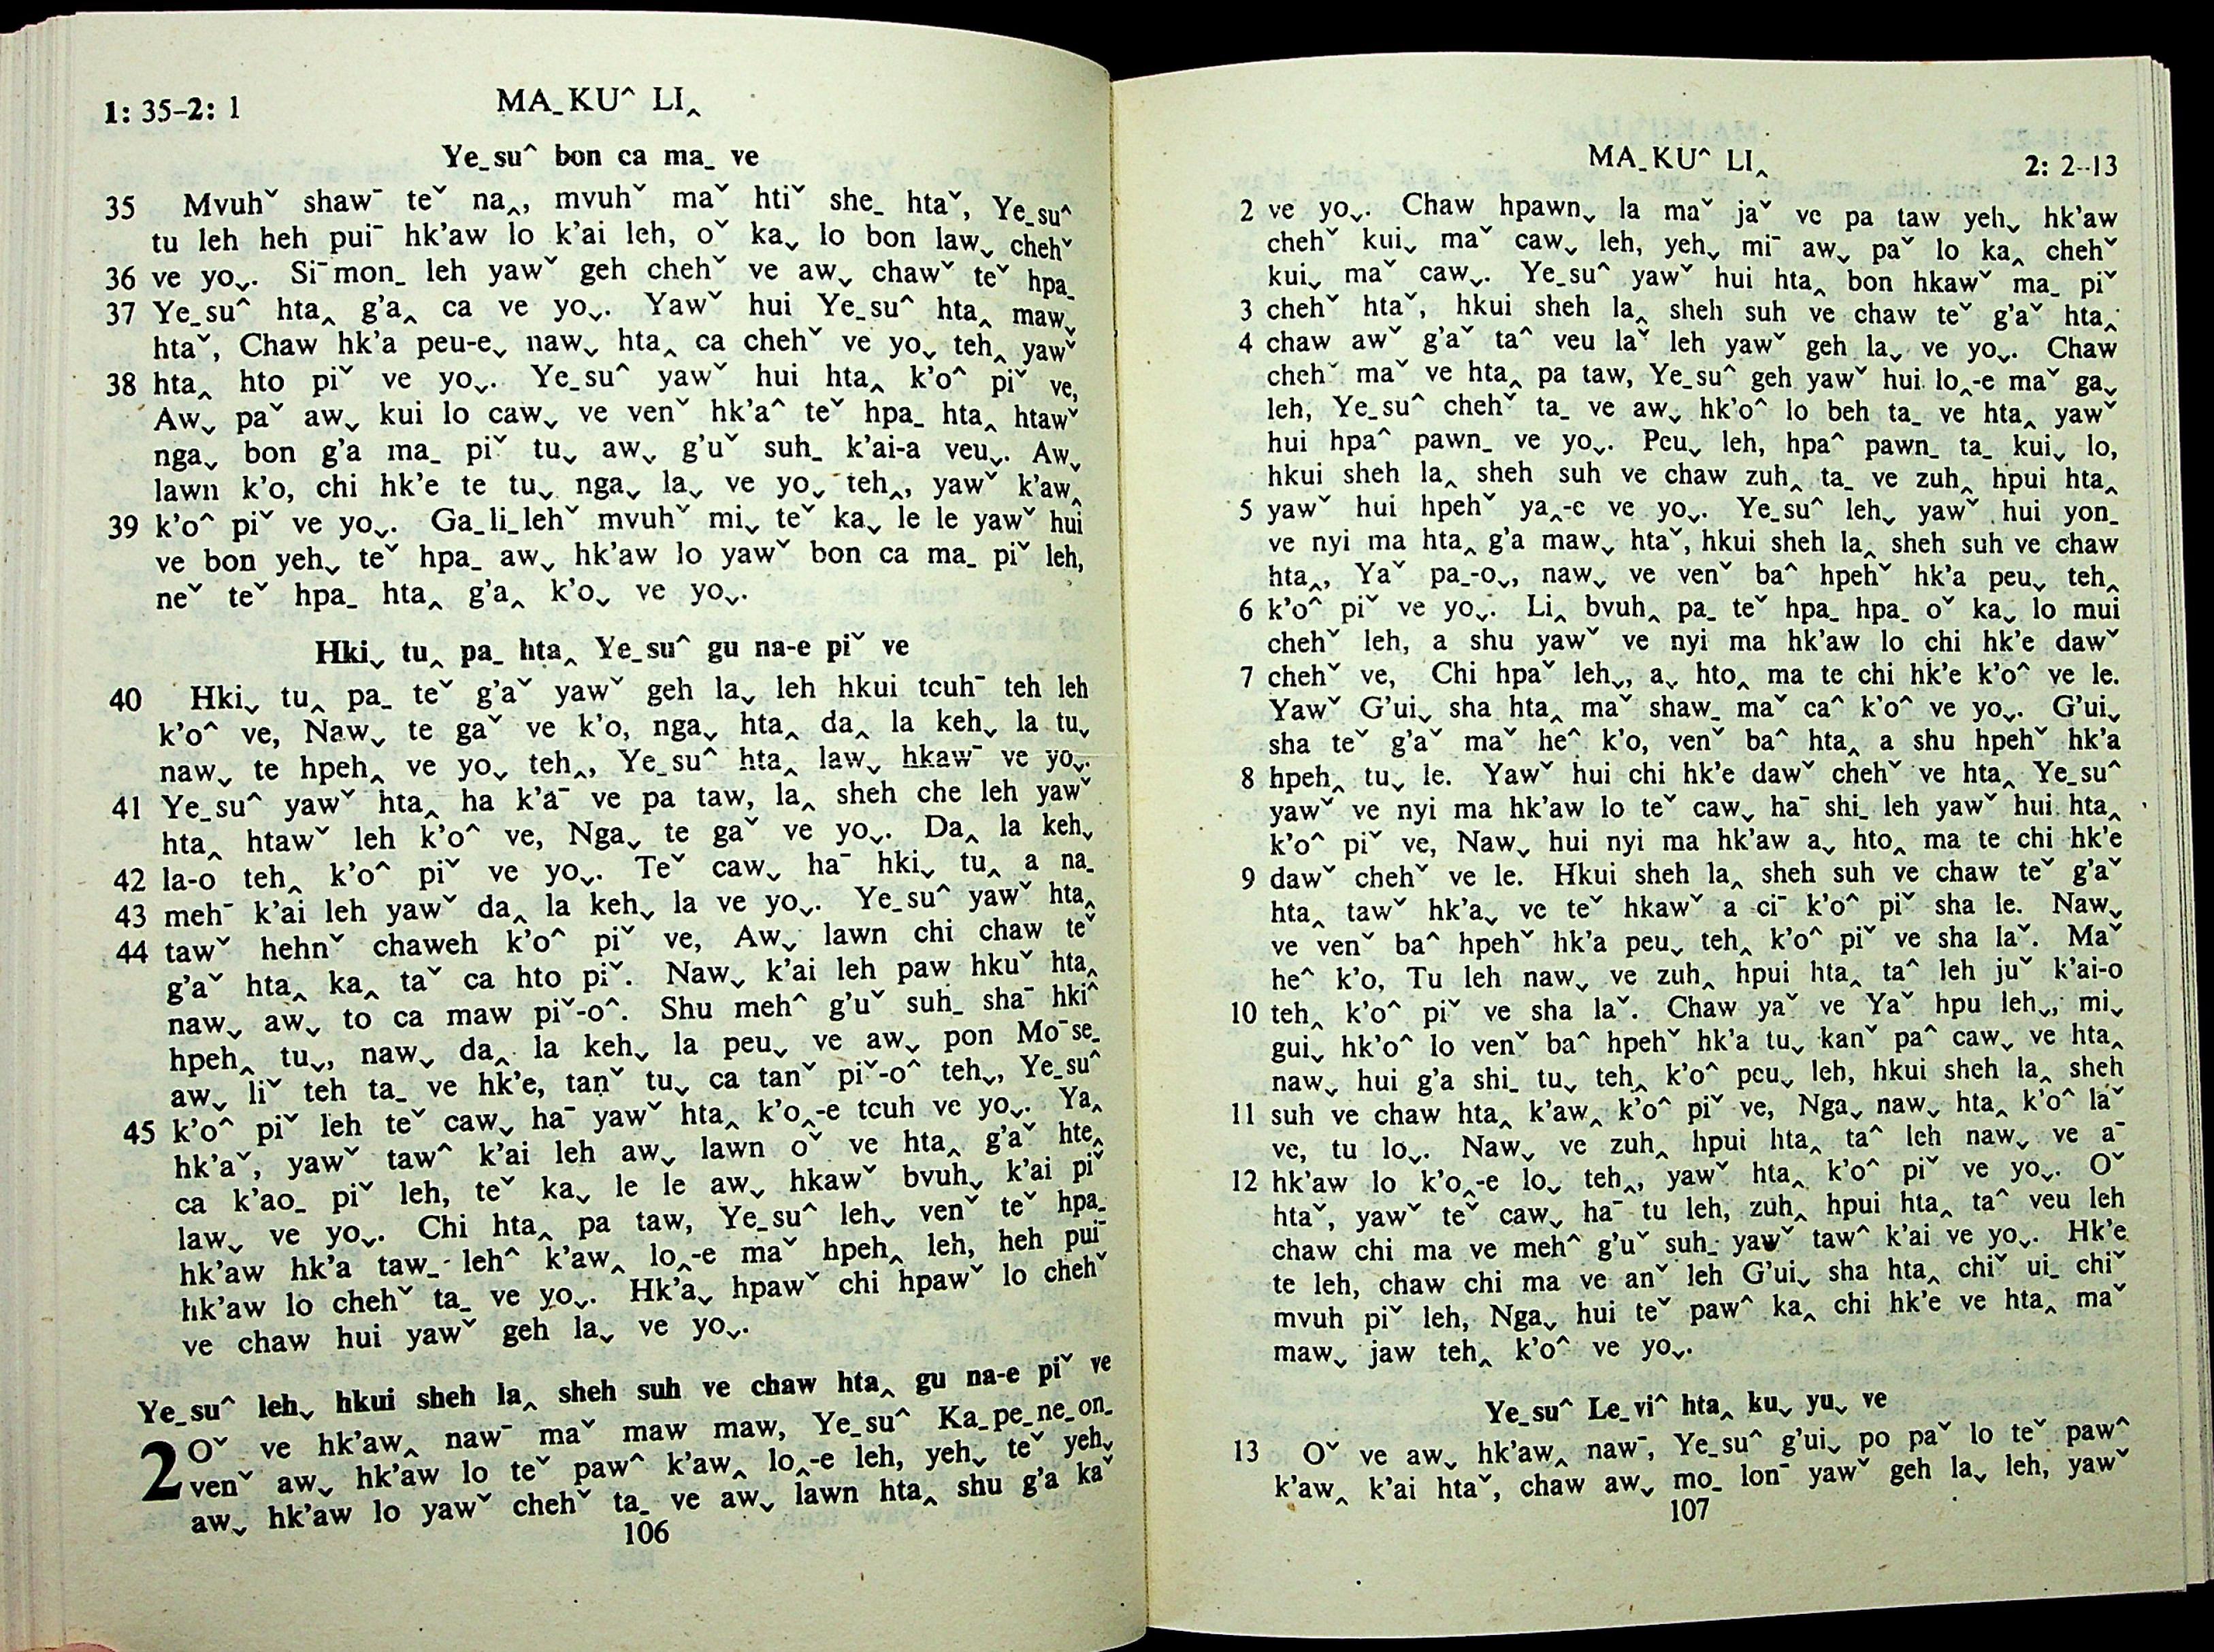 1: 35–2: 1
MA_KU^ LI‸
Ye_su^ bon ca ma_ ve
35 Mvuhˇ shaw¯ teˇ na‸, mvuhˇ maˇ htiˇ she_ htaˇ, Ye_su^
tu leh heh pui¯ hk'aw lo k'ai leh, oˇ ka˯ lo bon law˯ chehˇ
36 ve yo˯. Si¯mon_ leh yawˇ geh chehˇ ve aw˯ chawˇ teˇ hpa_
37 Ye_su^ hta‸ g'a‸ ca ve yo˯. Yawˇ hui Ye_su^ hta‸ maw˯
htaˇ, Chaw hk'a peu-e˯ naw˯ hta‸ ca chehˇ ve yo˯ teh‸ yawˇ
38 hta‸ hto piˇ ve yo˯. Ye_su^ yawˇ hui hta‸ k'o^ piˇ ve,
Aw˯ paˇ aw˯ kui lo caw˯ ve venˇ hk'a^ teˇ hpa_ hta‸ htawˇ
nga˯ bon g'a ma_ piˇ tu˯ aw˯ g'uˇ suh_ k'ai-a veu˯. Aw˯
lawn k'o, chi hk'e te tu˯ nga˯ la˯ ve yo˯ teh‸, yawˇ k'aw‸
39 k'o^ piˇ ve yo˯. Ga_li_lehˇ mvuhˇ mi˯ teˇ ka˯ le le yawˇ hui
ve bon yeh˯ teˇ hpa_ aw˯ hk'aw lo yawˇ bon ca ma_ piˇ leh,
neˇ teˇ hpa_ hta‸ g'a‸ k'o˯ ve yo˯.
Hki˯ tu‸ pa_ hta‸ Ye_su^ gu na-e piˇ ve
40 Hki˯ tu‸ pa_ teˇ g'aˇ yawˇ geh la˯ leh hkui tcuh¯ teh leh
k'o^ ve, Naw˯ te gaˇ ve k'o, nga˯ hta‸ da‸ la keh˯ la tu˯
naw˯ te hpeh‸ ve yo˯ teh‸, Ye_su^ hta‸ law˯ hkaw¯ ve yo˯.
41 Ye_su^ yawˇ hta‸ ha k'a¯ ve pa taw, la‸ sheh che leh yawˇ
hta‸ htawˇ leh k'o^ ve, Nga˯ te gaˇ ve yo˯. Da‸ la keh˯
42 la-o teh‸ k'o^ piˇ ve yo˯. Teˇ caw˯ ha¯ hki˯ tu‸ a na_
43 meh¯ k'ai leh yawˇ da‸ la keh˯ la ve yo˯. Ye_su^ yawˇ hta‸
44 tawˇ hehnˇ chaweh k'o^ piˇ ve, Aw˯ lawn chi chaw teˇ
g'aˇ hta‸ ka‸ taˇ ca hto piˇ. Naw˯ k'ai leh paw hkuˇ hta‸
naw˯ aw˯ to ca maw piˇ-o^. Shu meh^ g'uˇ suh_ sha¯ hki^
hpeh‸ tu˯, naw˯ da‸ la keh˯ la peu˯ ve aw˯ pon Mo¯se_
aw˯ liˇ teh ta_ ve hk'e, tanˇ tu˯ ca tanˇ piˇ-o^ teh˯, Ye_su^
45 k'o^ piˇ leh teˇ caw˯ ha¯ yawˇ hta‸ k'o‸-e tcuh ve yo˯. Ya‸
hk'aˇ, yawˇ taw^ k'ai leh aw˯ lawn oˇ ve hta‸ g'aˇ hte‸
ca k'ao_ piˇ leh, teˇ ka˯ le le aw˯ hkawˇ bvuh˯ k'ai piˇ
law˯ ve yo˯. Chi hta‸ pa taw, Ye_su^ leh˯ venˇ teˇ hpa_
hk'aw hk'a taw_ leh^ k'aw‸ lo‸-e maˇ hpeh‸ leh, heh pui¯
hk'aw lo chehˇ ta_ ve yo˯. Hk'a˯ hpawˇ chi hpawˇ lo chehˇ
ve chaw hui yawˇ geh la˯ ve yo˯.
Ye_su^ leh˯ hkui sheh la‸ sheh suh ve chaw hta‸ gu na-e piˇ ve
2 Oˇ ve hk'aw‸ naw¯ maˇ maw maw, Ye_su^ Ka_pe_ne_on_
venˇ aw˯ hk'aw lo teˇ paw^ k'aw‸ lo‸-e leh, yeh˯ teˇ yeh˯
aw˯ hk'aw lo yawˇ chehˇ ta_ ve aw˯ lawn hta‸ shu g'a kaˇ
106
MA_KU^ LI‸
2: 2–13
2 ve yo˯. Chaw hpawn˯ la maˇ jaˇ ve pa taw yeh˯ hk'aw
chehˇ kui˯ maˇ caw˯ leh, yeh˯ mi¯ aw˯ paˇ lo ka‸ chehˇ
kui˯ maˇ caw˯. Ye_su^ yawˇ hui hta‸ bon hkawˇ ma_ piˇ
3 chehˇ htaˇ, hkui sheh la‸ sheh suh ve chaw teˇ g'aˇ hta‸
4 chaw awˇ g'aˇ ta^ veu laˇ leh yawˇ geh la˯ ve yo˯. Chaw
chehˇ maˇ ve hta‸ pa taw, Ye_su^ geh yawˇ hui lo‸-e maˇ ga˯
leh, Ye_su^ chehˇ ta_ ve aw˯ hk'o^ lo beh ta_ ve hta‸ yawˇ
hui hpa^ pawn_ ve yo˯. Peu˯ leh, hpa^ pawn_ ta_ kui˯ lo,
hkui sheh la‸ sheh suh ve chaw zuh‸ ta_ ve zuh‸ hpui hta‸
5 yawˇ hui hpehˇ ya‸-e ve yo˯. Ye_su^ leh˯ yawˇ hui yon_
ve nyi ma hta‸ g'a maw˯ htaˇ, hkui sheh la‸ sheh suh ve chaw
hta‸, Yaˇ pa_-o˯, naw˯ ve venˇ ba^ hpehˇ hk'a peu˯ teh‸
6 k'o^ piˇ ve yo˯. Li‸ bvuh‸ pa_ teˇ hpa_ hpa_ oˇ ka˯ lo mui
chehˇ leh, a shu yawˇ ve nyi ma hk'aw lo chi hk'e dawˇ
7 chehˇ ve, Chi hpaˇ leh˯, a˯ hto‸ ma te chi hk'e k'o^ ve le.
Yawˇ G'ui˯ sha hta‸ maˇ shaw_ maˇ ca^ k'o^ ve yo˯. G'ui˯
sha teˇ g'aˇ maˇ he^ k'o, venˇ ba^ hta‸ a shu hpehˇ hk'a
8 hpeh‸ tu˯ le. Yawˇ hui chi hk'e dawˇ chehˇ ve hta‸ Ye_su^
yawˇ ve nyi ma hk'aw lo teˇ caw˯ ha¯ shi_ leh yawˇ hui hta‸
k'o^ piˇ ve, Naw˯ hui nyi ma hk'aw a˯ hto‸ ma te chi hk'e
9 dawˇ chehˇ ve le. Hkui sheh la‸ sheh suh ve chaw teˇ g'aˇ
hta‸ tawˇ hk'a˯ ve teˇ hkawˇ a ci¯ k'o^ piˇ sha le. Naw˯
ve venˇ ba^ hpehˇ hk'a peu˯ teh‸ k'o^ piˇ ve sha laˇ. Maˇ
he^ k'o, Tu leh naw˯ ve zuh‸ hpui hta‸ ta^ leh juˇ k'ai-o
10 teh‸ k'o^ piˇ ve sha laˇ. Chaw yaˇ ve Yaˇ hpu leh˯, mi˯
gui˯ hk'o^ lo venˇ ba^ hpehˇ hk'a tu˯ kanˇ pa^ caw˯ ve hta‸
naw˯ hui g'a shi_ tu˯ teh‸ k'o^ peu˯ leh, hkui sheh la‸ sheh
11 suh ve chaw hta‸ k'aw‸ k'o^ piˇ ve, Nga˯ naw˯ hta‸ k'o^ laˇ
ve, tu lo˯. Naw˯ ve zuh‸ hpui hta‸ ta^ leh naw˯ ve a¯
12 hk'aw lo k'o‸-e lo˯ teh‸, yawˇ hta‸ k'o^ piˇ ve yo˯. Oˇ
htaˇ, yawˇ teˇ caw˯ ha¯ tu leh, zuh‸ hpui hta‸ ta^ veu leh
chaw chi ma ve meh^ g'uˇ suh_ yawˇ taw^ k'ai ve yo˯. Hk'e
te leh, chaw chi ma ve anˇ leh G'ui˯ sha hta‸ chiˇ ui_ chiˇ
mvuh piˇ leh, Nga˯ hui teˇ paw^ ka‸ chi hk'e ve hta‸ maˇ
maw˯ jaw teh‸ k'o^ ve yo˯.
Ye_su^ Le_vi^ hta‸ ku˯ yu˯ ve
13 Oˇ ve aw˯ hk'aw‸ naw¯, Ye_su^ g'ui˯ po paˇ lo teˇ paw^
k'aw‸ k'ai htaˇ, chaw aw˯ mo_ lon¯ yawˇ geh la˯ leh, yawˇ
107